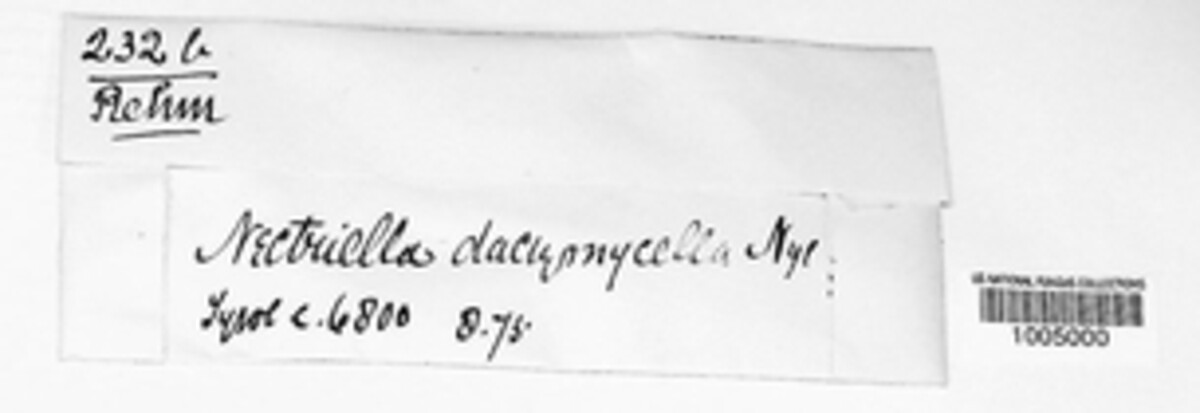 232 b
Rehm
Nectriella dacrymycella Nyl:
Tyrol c. 6800 8.75
US NATIONAL FUNGUS COLLECTIONS
1005000